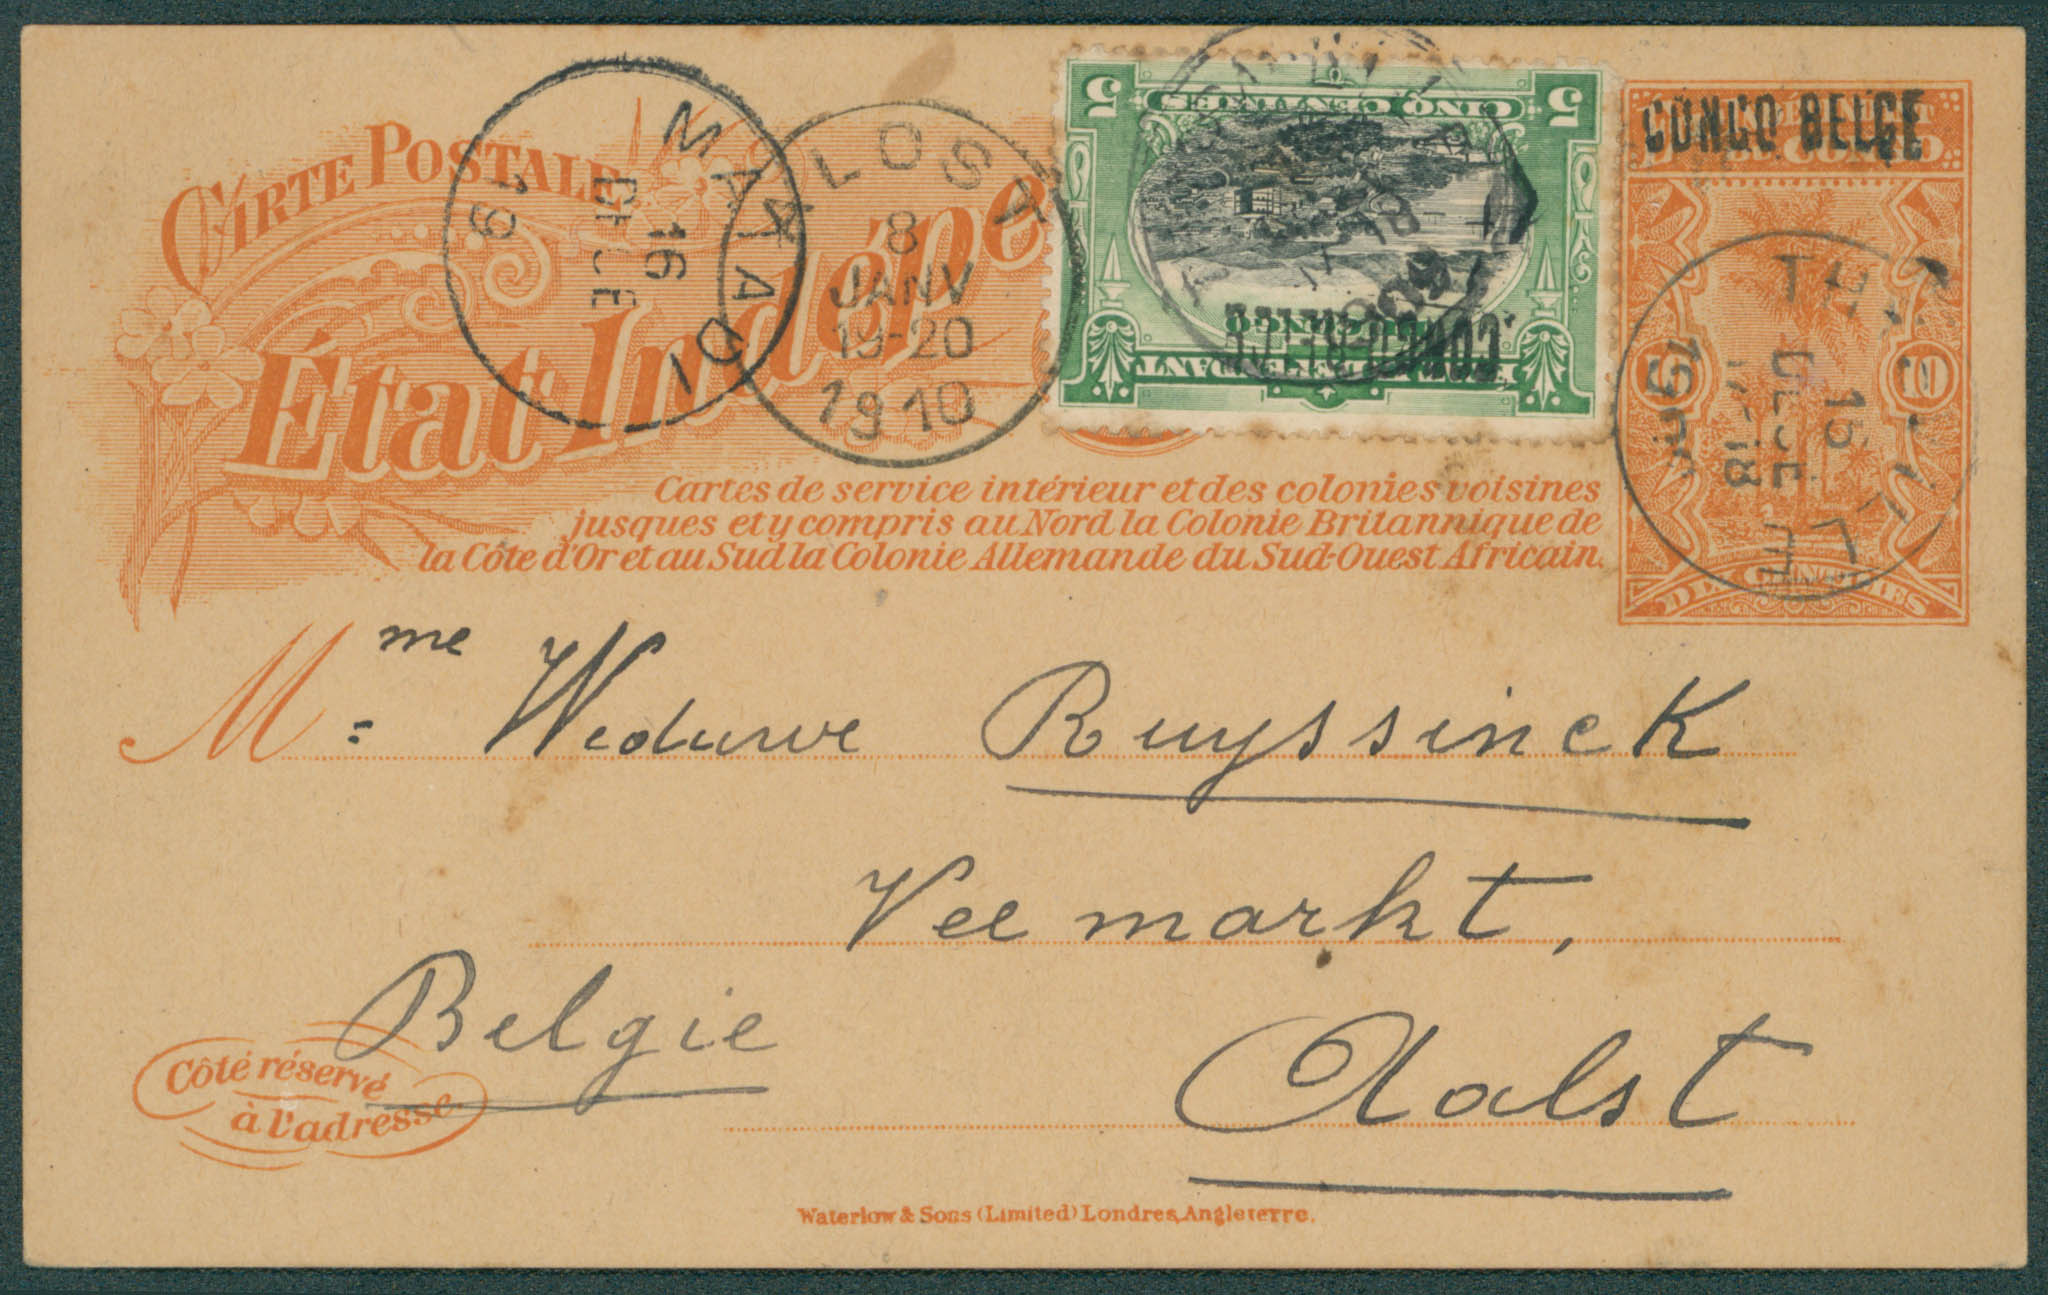 CARTE POSTALE
État Indépe
CONGO BELGE
10 10
DIX CENTIMES
5 5
CINQ CENTIMES
CONGO BELGE
MATADI
16
DECE
19
ALOST
8
JANV
19-20
1910
TH VILLE
15
DECE
Cartes de service intérieur et des colonies voisines
jusques et y compris au Nord la Colonie Britannique de
la Côte d'Or et au Sud la Colonie Allemande du Sud-Ouest Africain.
Mme Weduwe Ruyssinck
Veemarkt,
België
Aalst
Côté réservé
à l'adresse
Waterlow & Sons (Limited) Londres, Angleterre.